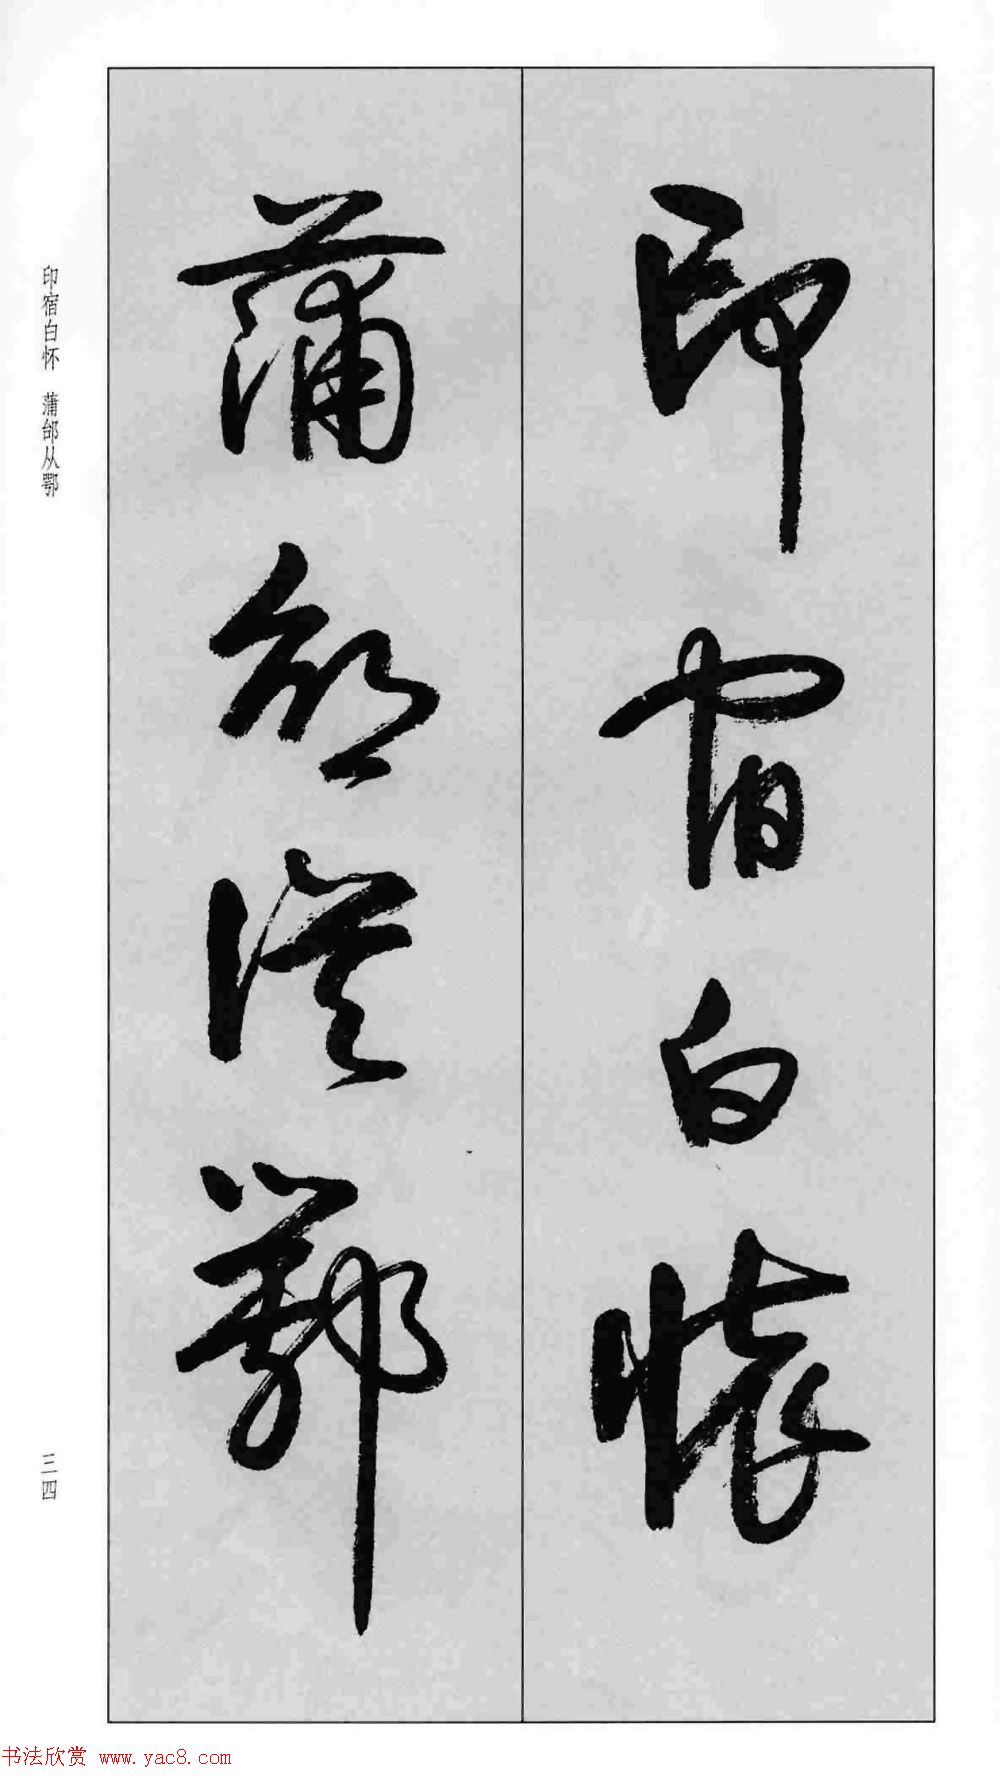 印宿白懷
蒲邰從鄂
印宿白怀 蒲邰从鄂
三四
书法欣赏 www.yac8.com